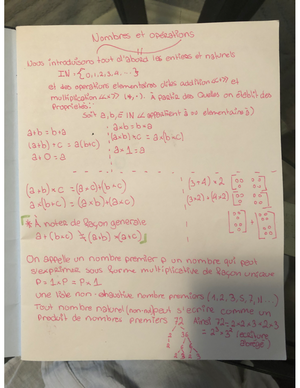 Nombres et opérations
Nous introduisons tout d'abord les entiers et naturels
IN = {0,1,2,3,4,...}
et des operations elementaires dites addition «+» et
multiplication «×» (*,·). à partir des
Propriétés:
Soit a,b,∈ IN
a+b = b+a
a×b = b×a
(a+b)+c = a(b+c)
(a×b)×c = a×(b×c)
a+0=a
a×1=a
(a+b)×c = (a×c)+(b×c)
a×(b+c) = (a×b)+(a×c)
(3+4)×2
(3×2)+(4×2)
* À notes de façon generale
a+(b×c) ≠ (a+b)×(a+c)
On appelle un nombre premier p un nombre qui peut
s'exprimer sous forme multiplicative de façon unique
P = 1×P = P×1
une liste non-exhaustive nombre premiers (1,2,3,5,7,11...)
Tout nombre naturel peut s'ecrire comme un
Produit de nombres premiers 72 Ainsi 72=2×2×2×3×3
= 2³×3²